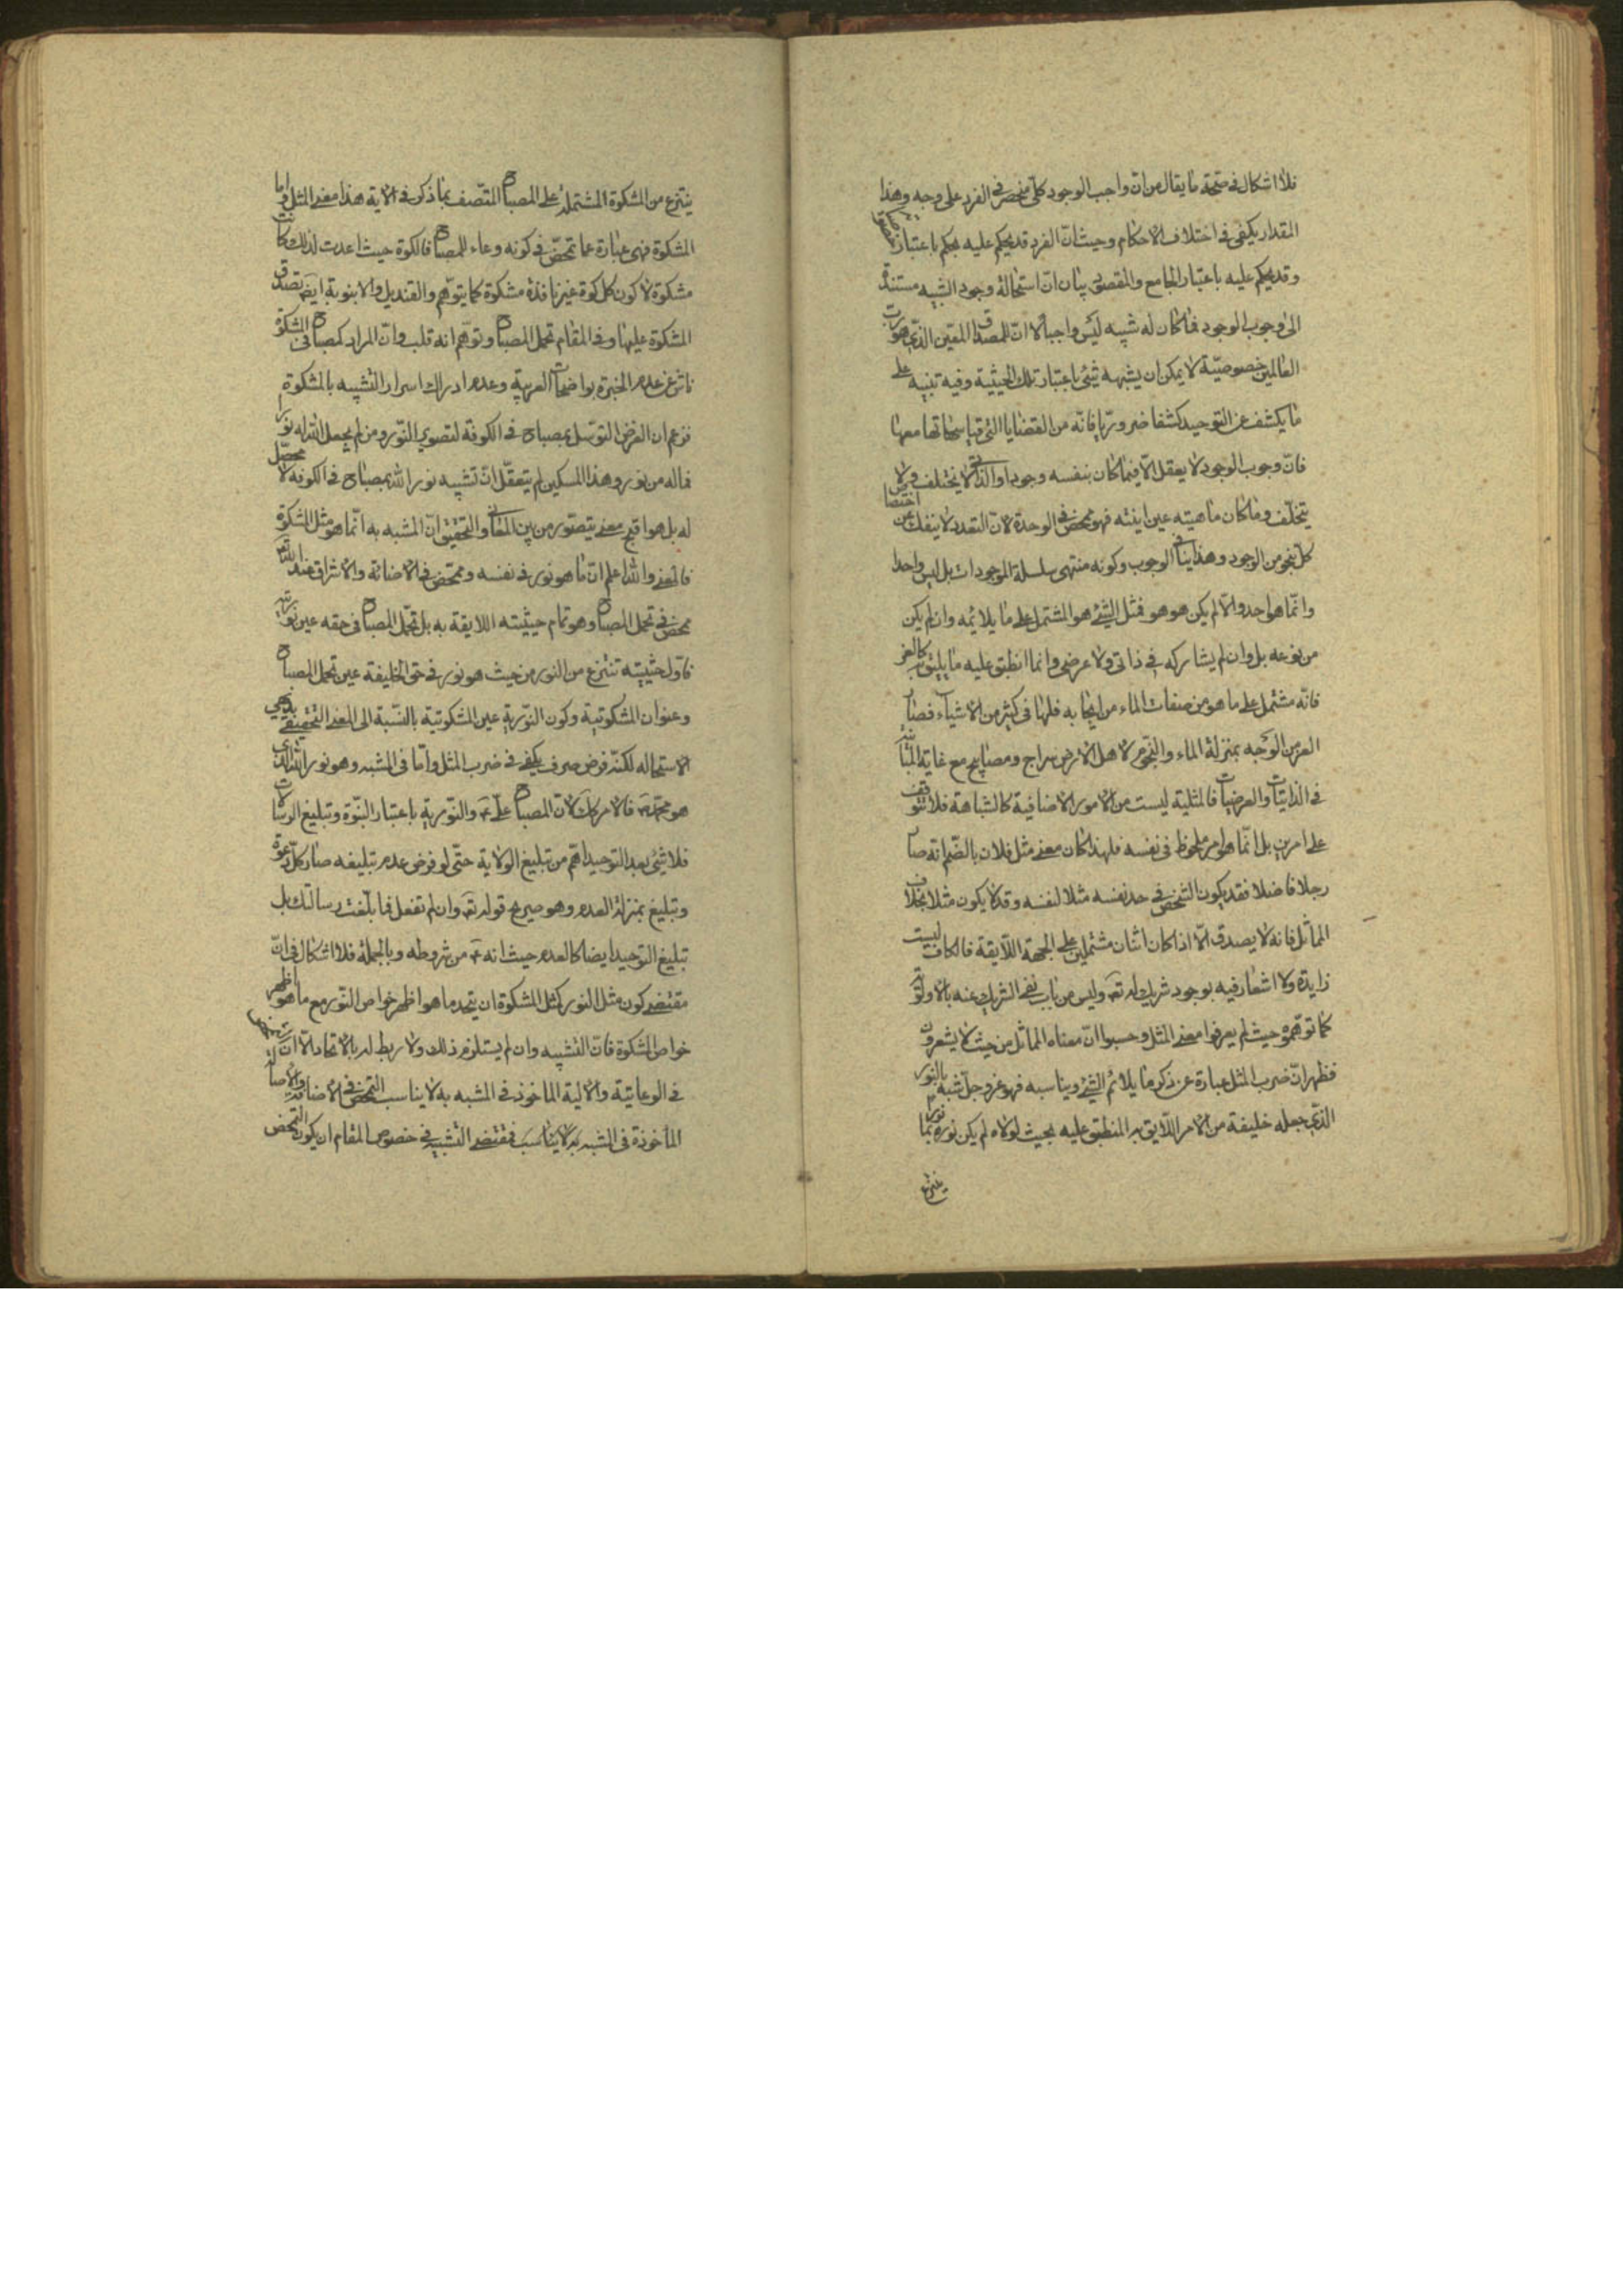 فلا اشكال فى صحّة ما يقال من انّ واجب الوجود كلّى منحصر فى الفرد على وجه وهذا
المقدار يكفى فى اختلاف الاحكام وحيث انّ الفرد قد يحكم عليه بحكم باعتبار
وقد يحكم عليه باعتبار الجامع والمقصود بيان انّ استحالة وجود الشبيه مستندة
الى وجوب الوجود فما كان له شبيه ليس واجبا لا انّ للمصداق المعين الذى هو ربّ
العالمين خصوصيّة لا يمكن ان يشبهه شئ باعتبار تلك الحيثية وفيه تنبيه على
ما يكشف عن التوحيد كشفا ضروريّا فانّه من القضايا التى قياساتها معها
فانّ وجوب الوجود لا يعقل الّا فيما كان بنفسه وجودا والذاتى لا يختلف ولا
يتخلّف وما كان ماهيته عين انيّته فهو محض فى الوحدة لانّ التعدد لا ينفك عن
كلّ نحو من الوجود وهذا ينافى الوجوب وكونه منتهى سلسلة الموجودات بل ليس واحدا
وانّما هو احد والّا لم يكن هو هو فمثل الشئ هو المشتمل على ما يلائمه وان لم يكن
من نوعه بل وان لم يشاركه فى ذاتى ولا عرضى وانما انطبق عليه ما يليق به كالعز
فانّه مشتمل على ما هو من صفات الماء من ايجابه فلها فى كثير من الاشياء فصار
العز من الوجه بمنزلة الماء والنجوم لاهل الارض سراج ومصابيح مع غاية المباينة
فى الذاتيّات والعرضيات فالمثلية ليست من الامور الاضافية كالشباهة فلا تتوقف
على امرين بل انّما هو امر ملحوظ فى نفسه فلهذا كان معنى مثل فلان بالضّم انه صار
رجلا فاضلا فقد يكون الشخص فى حد نفسه مثلا لنفسه وقد لا يكون مثلا بخلاف
المماثل فانه لا يصدق الّا اذا كان اثنان مشتملين على الجهة اللّايقة فالكاف ليست
زايدة ولا اشعار فيه بوجود شريك له تعـ وليس من باب نفى الشريك عنه بالاولويّة
كما توهّموه حيث لم يعرفوا معنى المثل وحسبوا انّ معناه المماثل من حيث لا يشعرون
فظهر انّ ضرب المثل عبارة عن ذكر ما يلائم الشئ ويناسبه فهو عز وجل شبه بالنور
الذى جعله خليفة من الامر اللّايق به المنطبق عليه بحيث لولاه لم يكن نوره نورا بما
ينتزع
ينتزع من المشكوة المشتملة على المصباح المتّصف بما ذكر فى الاية هذا معنى المثل واما
المشكوة فهى عبارة عما تمحّض فى كونه وعاء للمصباح فالكوة حيث اعدت لذلك كانت
مشكوة لا كون كل كوة غير نافذة مشكوة كما يتوهّم والقنديل والانبوبة ايضـ تصدق
المشكوة عليها وفى المقام تحمل المصباح وتوهّم انه قلب وانّ المراد كمصباح فى المشكوة
ناش عن عدم الخبرة بواضحات العربية وعدم ادراك اسرار التشبيه بالمشكوة
فزعم ان الغرض التوسّل بمصباح فى الكوة لتصوير النّور ومن لم يجعل الله له نورا
فما له من نور وهذا المسكين لم يتعقّل انّ تشبيه نور الله بمصباح فى الكوة لا محصّل
له بل هو اقبح معنى يتصوّر من بين المعانى والتحقيق انّ المشبه به انّما هو مثل المشكوة
فالمعنى والله اعلم انّ ما هو نور فى نفسه ومتمحّض فى الاضائة والاشراق عند الله تعـ
محض فى تحمل المصباح وهو تمام حيثيته اللايقة به بل تحمّل المصباح فى حقه عين نوريته
فاوّل حيثيته تنتزع من النور من حيث هو نور فى حق الخليفة عين تحمل المصباح
وعنوان المشكوتية وكون النّورية عين المشكوتية بالنّسبة الى المعنى الحقيقى بديهى
الاستحاله لكنّه فرض صرف يكفى فى ضرب المثل وامّا فى المشبه وهو نور الله الذى
هو محمّد صـ فالامر كك لانّ المصباح علىّ عـ والنّورية باعتبار النبّوة وتبليغ الرسالات
فلا شئ بعد التوحيد اهّم من تبليغ الولاية حتّى لو فرض عدم تبليغه صار كلّ دعوة
وتبليغ بمنزلة العدم وهو صريح قوله تعـ وان لم تفعل فما بلّغت رسالتك بل
تبليغ التوحيد ايضا كالعدم حيث انه عـ من شروطه وبالجملة فلا اشكال فى انّ
مقتضى كون مثل النور كمثل المشكوة ان يتحد ما هو اظهر خواص النّور مع ما هو اظهر
خواص المشكوة فانّ التشبيه وان لم يستلزم ذلك ولا ربط له بالاتحاد الّا انّ
فى الوعائيّة والالية الماخوذ فى المشبه به لا يناسب التمحض فى الاضائة والاصالة
المأخوذة فى المشبه به لا يناسب فمقتضى التشبيه فى خصوص المقام ان يكون التمحض